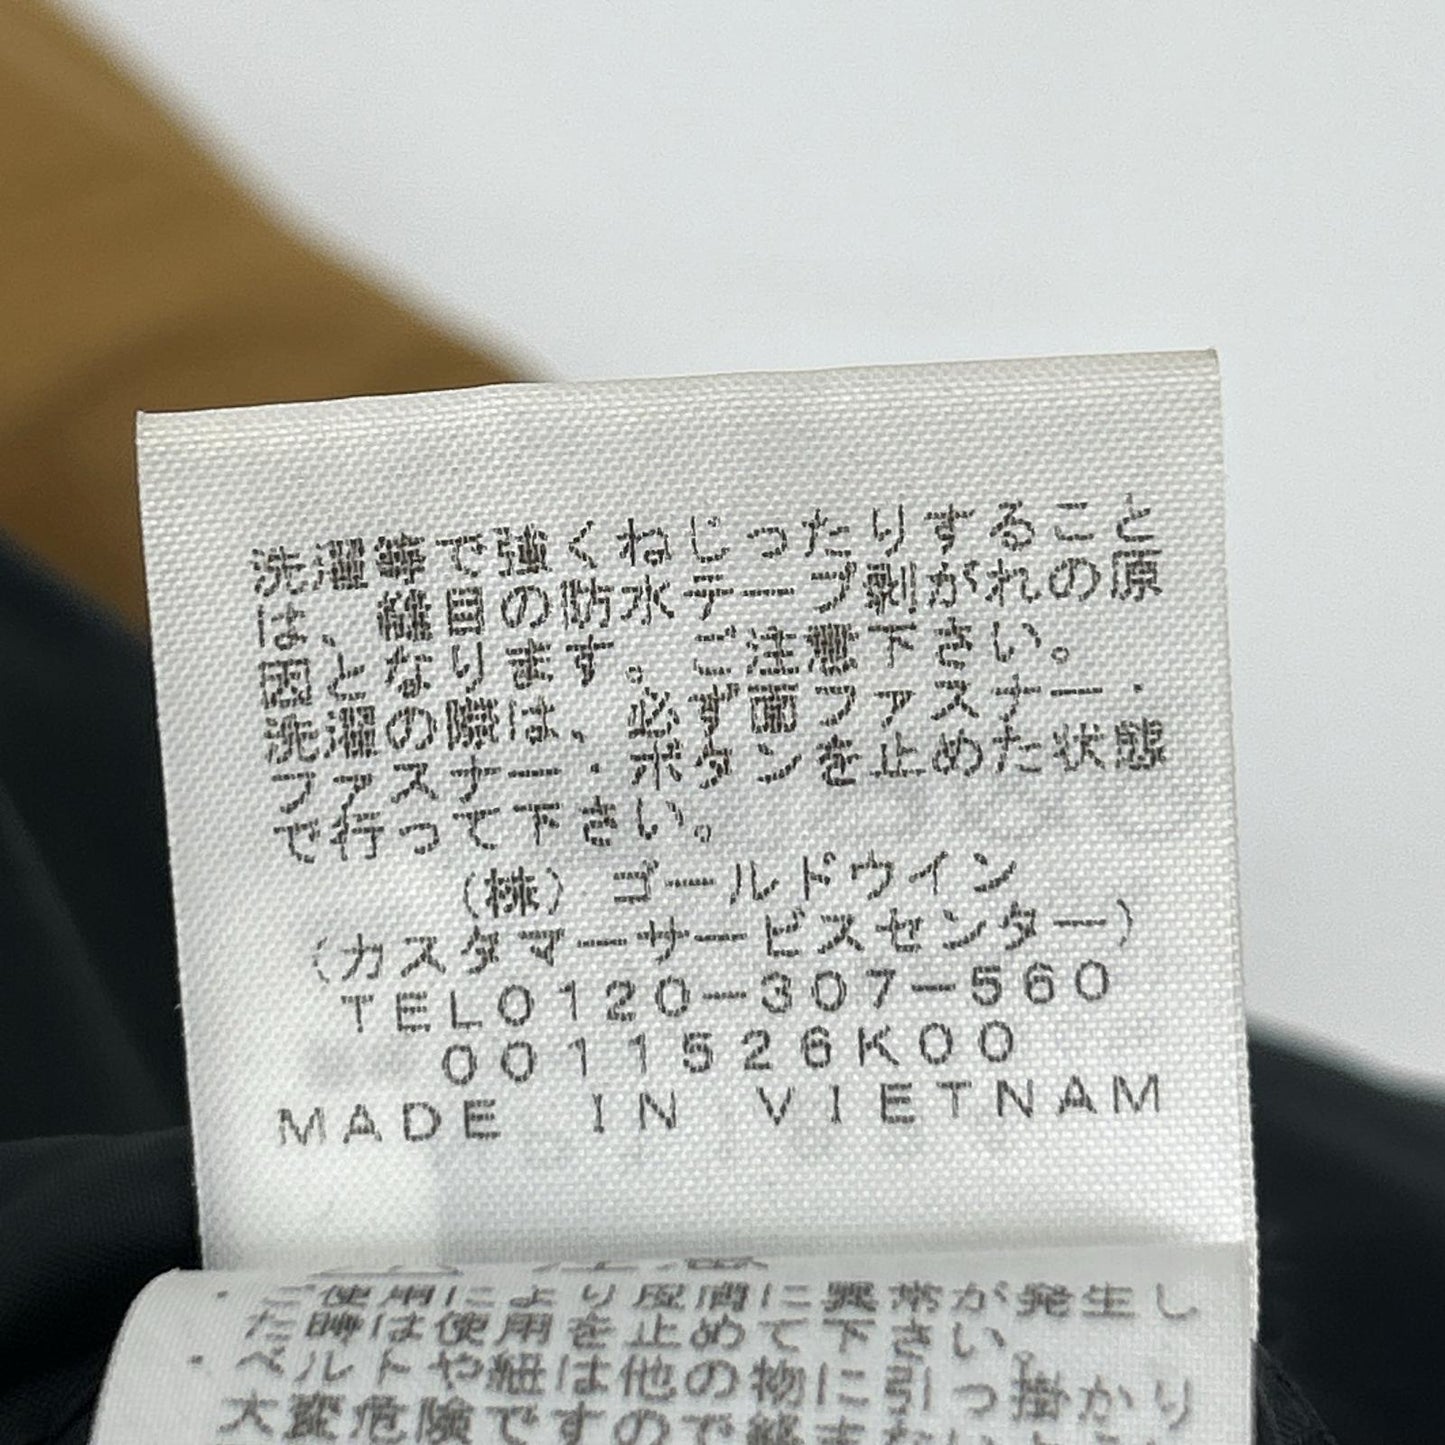 洗濯等で強くねじったりすること
は、縫目の防水テープ剥がれの原
因となります。ご注意下さい。
洗濯の際は、必ず面ファスナー・
ファスナー・ボタンを止めた状態
で行って下さい。
（株）ゴールドウイン
（カスタマーサービスセンター）
TEL0120-307-560
0011526K00
MADE IN VIETNAM
・ご使用により皮膚に異常が発生し
た時は使用を止めて下さい。
・ベルトや紐は他の物に引っ掛かり
大変危険ですので